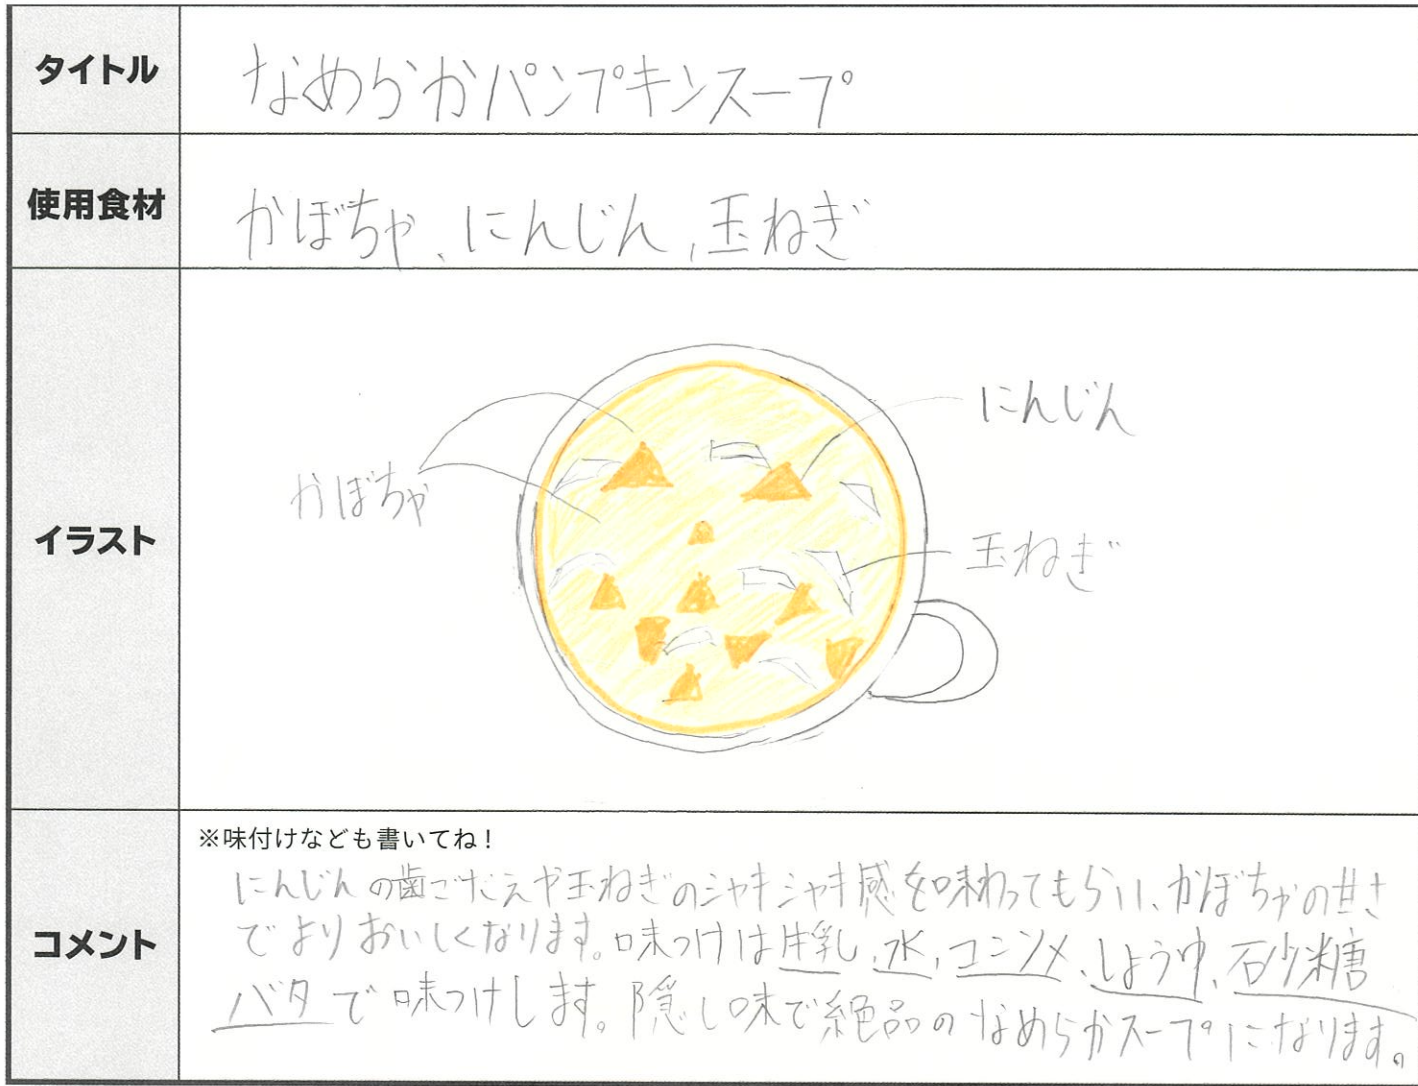 タイトル
なめらかパンプキンスープ
使用食材
かぼちゃ、にんじん、玉ねぎ
イラスト
にんじん
かぼちゃ
玉ねぎ
コメント
※味付けなども書いてね!
にんじんの歯ごたえや玉ねぎのシャキシャキ感を味わってもらい、かぼちゃの甘さ
でよりおいしくなります。味つけは牛乳、水、コンソメ、しょうゆ、砂糖
バタで味つけします。隠し味で絶品のなめらかスープになります。